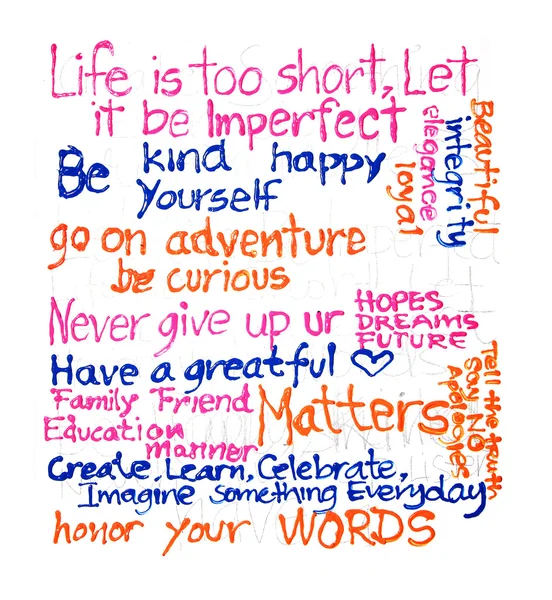 Life is too short, Let
it be Imperfect
Be kind happy
yourself
Beautiful
integrity
elegance
loyal
go on adventure
be curious
Never give up ur
HOPES
DREAMS
FUTURE
Have a greatful ♡
Family Friend
Education
manner
Matters
Tell the truth
Say NO
Apologies
Create, Learn, Celebrate,
Imagine something Everyday
honor your WORDS